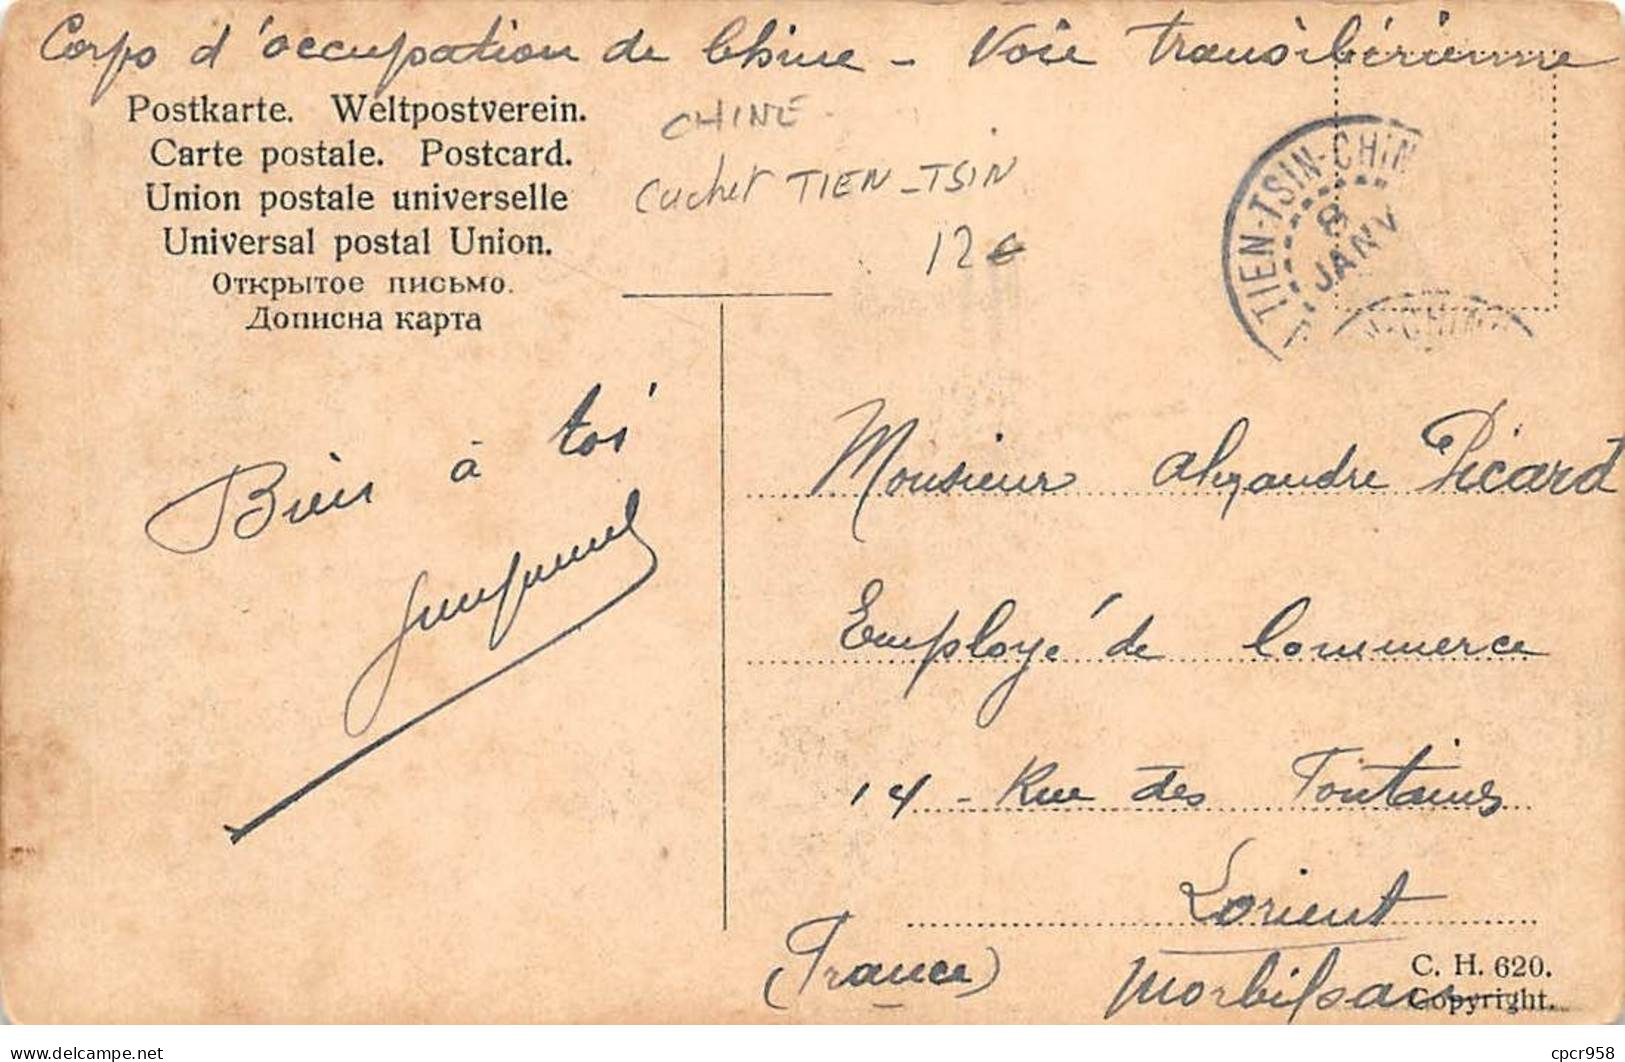 Corps d'occupation de Chine - Voie transibérienne
Postkarte. Weltpostverein.
Carte postale. Postcard.
Union postale universelle
Universal postal Union.
Открытое письмо.
Дописна карта
CHINE
cachet TIEN-TSIN
12€
TIEN-TSIN-CHIN
8
JANV
-CHINE-
Bien à toi
Monsieur Alexandre Picard
Employé de Commerce
14 - Rue des Fontaines
Lorient
(France)
Morbihan
C. H. 620.
Copyright.
delcampe.net
cpcr958